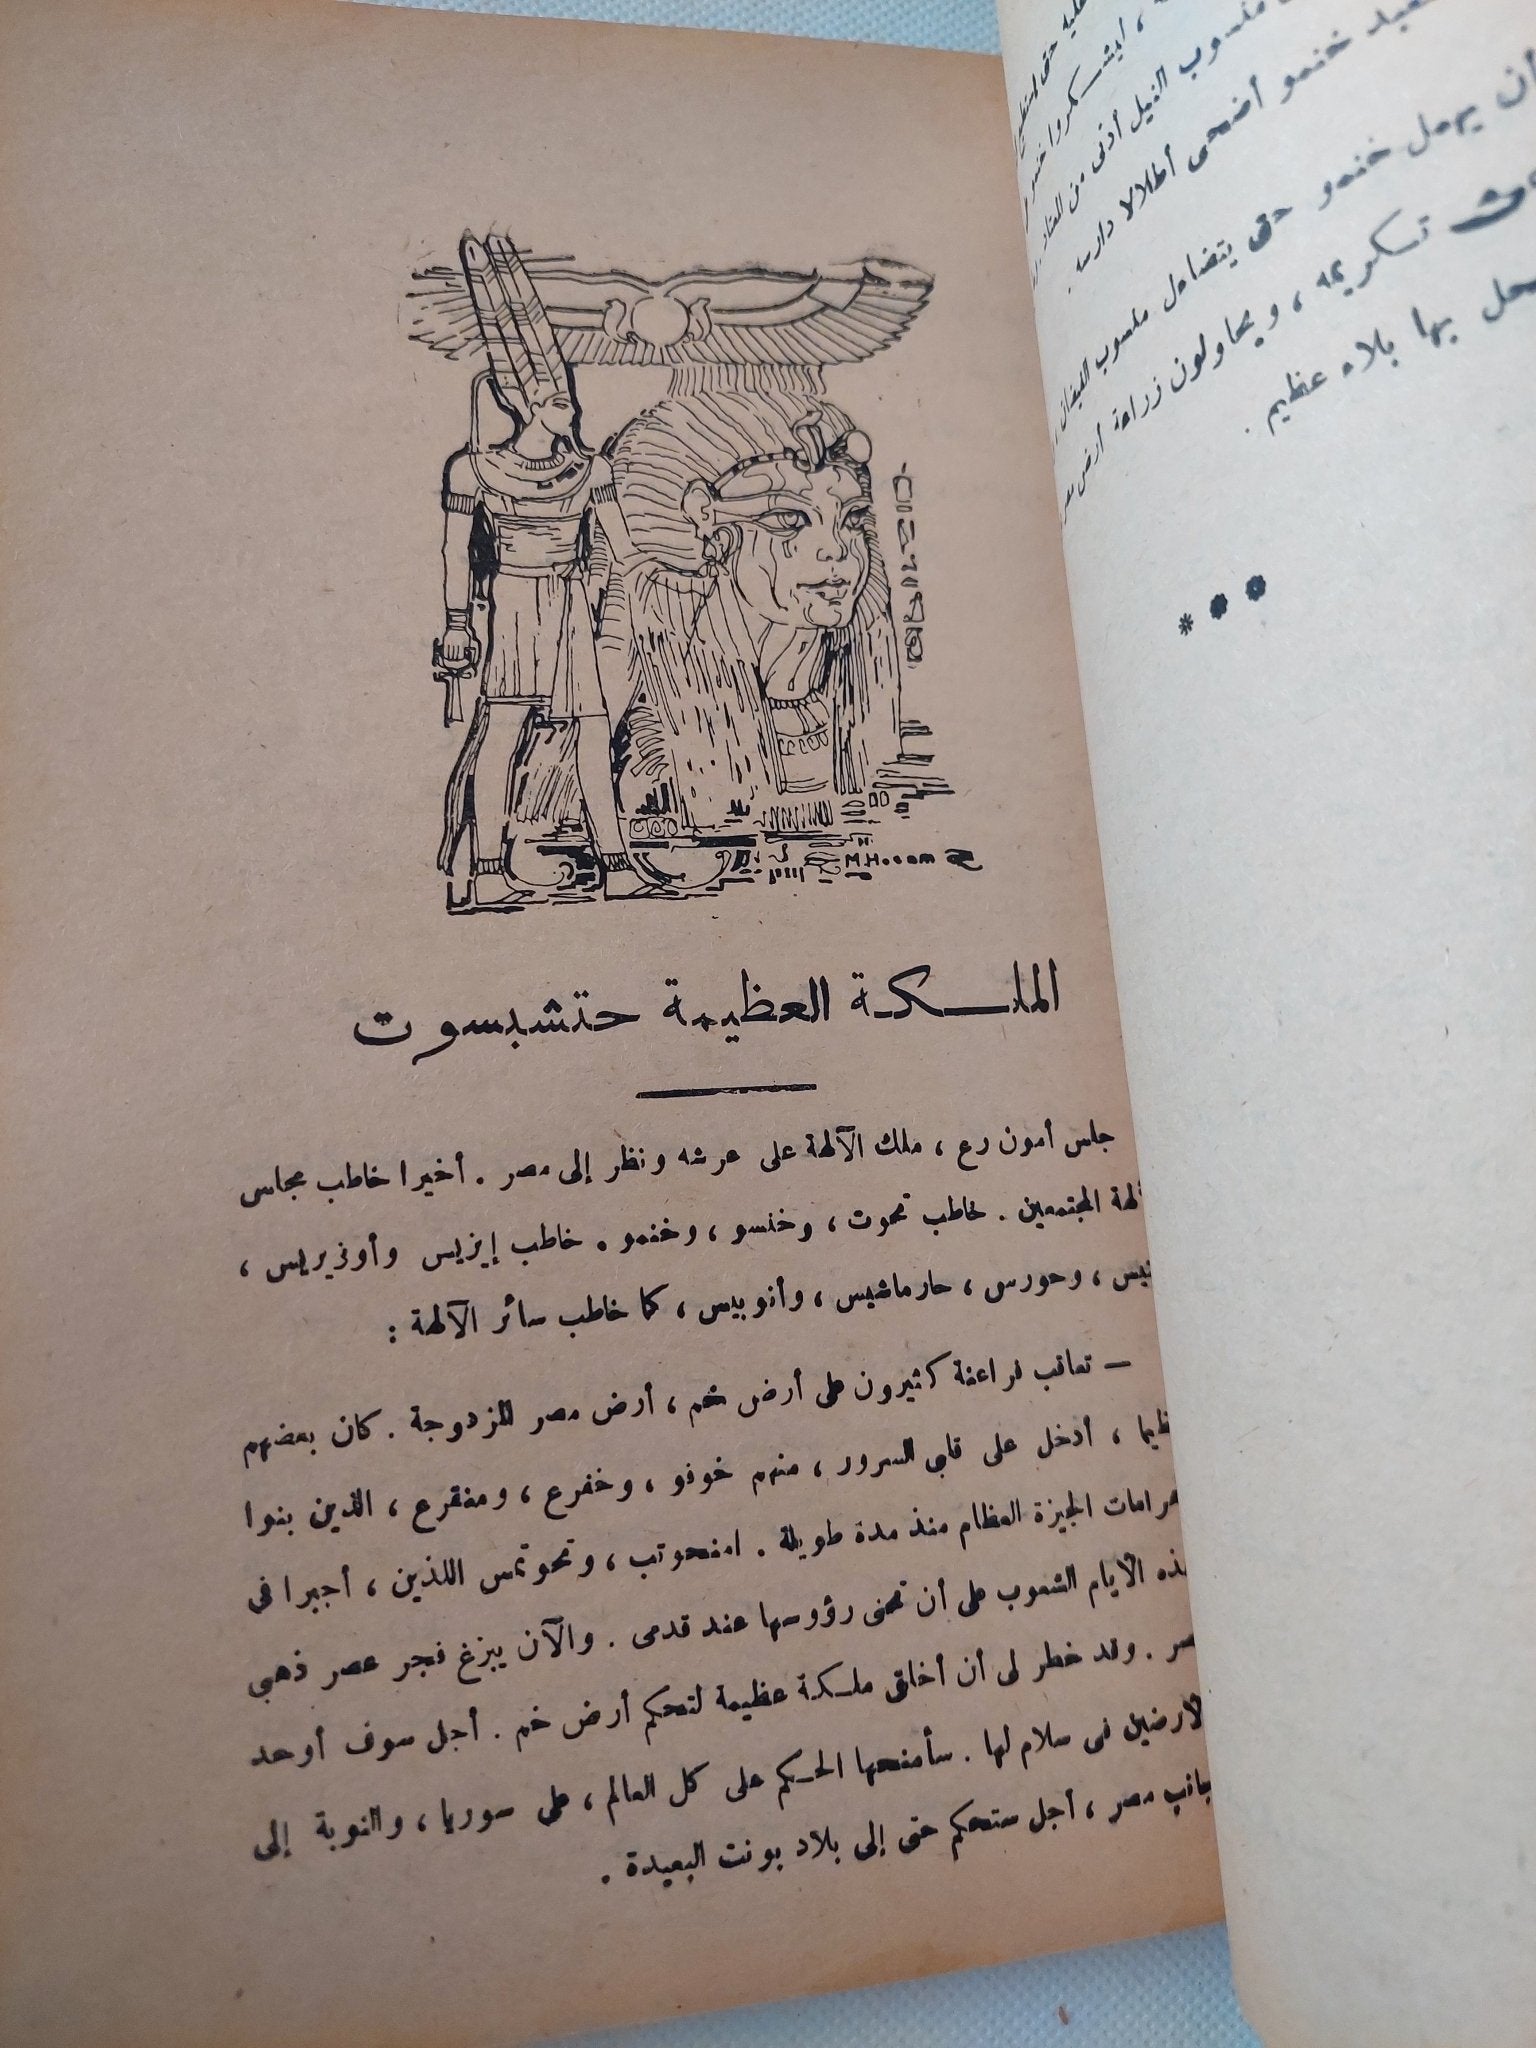 عليه حتى
، ليشكروا خنمو
منسوب النيل أدنى من
خنمو أضحى أطلالا دارسه .
أن يهمل خنمو حتى يتضاءل منسوب الفيضان
تكريمه ، ويحاولون زراعة أرض
بها بلاء عظيم .
* * *
M Hosam
الملكة العظيمة حتشبسوت
جلس أمون رع ، ملك الآلهة على عرشه ونظر إلى مصر . أخيرا خاطب مجلس
المجتمعين . خاطب تحوت ، وخنسو ، وخنمو . خاطب إيزيس وأوزيريس ،
، وحورس ، حارماشيس ، وأنوبيس ، كما خاطب سائر الآلهة :
– تعاقب فراعنة كثيرون على أرض خم ، أرض مصر المزدوجة . كان بعضهم
، أدخل على قلبي السرور ، منهم خوفو ، وخفرع ، ومنقرع ، الذين بنوا
الجيزة العظام منذ مدة طويلة . امنحوتب ، وتحوتمس اللذين ، أجبرا في
الأيام الشعوب على أن تحنى رؤوسها عند قدمى . والآن يبزغ فجر عصر ذهبى
. وقد خطر لى أن أخلق ملكة عظيمة لتحكم أرض خم . أجل سوف أوحد
فى سلام لها . سأمنحها الحكم على كل العالم ، على سوريا ، والنوبة إلى
مصر ، أجل ستحكم حتى إلى بلاد بونت البعيدة .